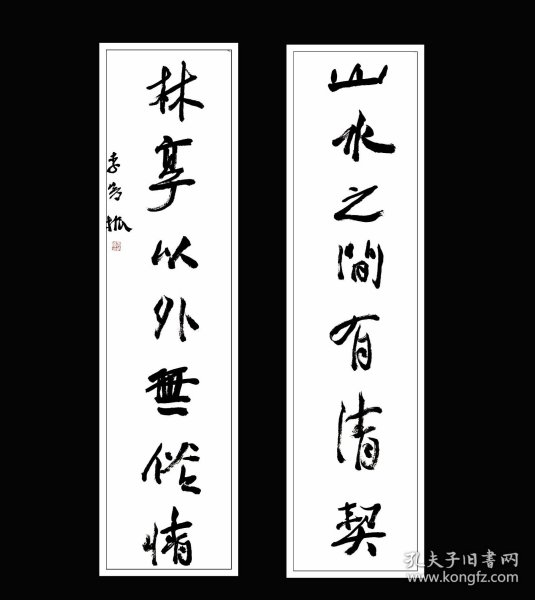 山水之間有清契
林亭以外無俗情
孔夫子旧書网
www.kongfz.com